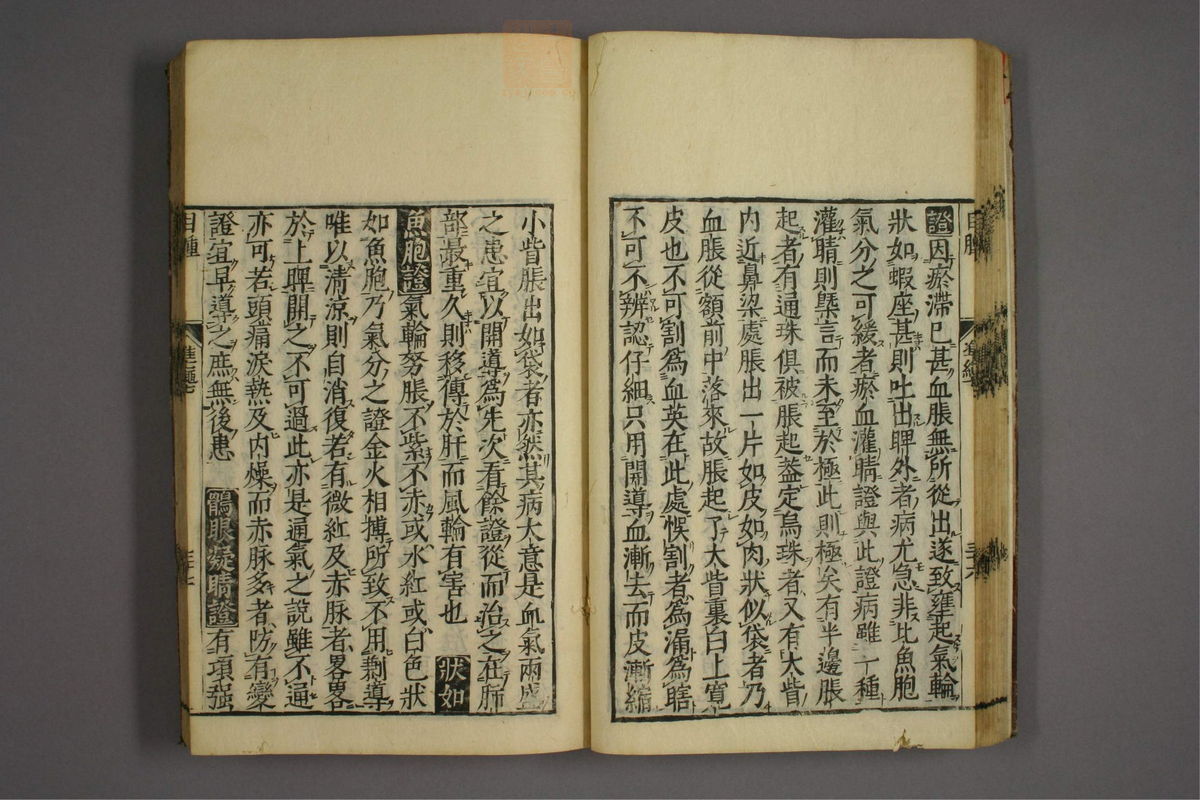 證因瘀滯已甚血脹無所從出遂致壅起氣輪
狀如蝦座甚則吐出睥外者病尤急非比魚胞
氣分之可緩者瘀血灌睛證與此證病雖一種
灌睛則槩言而未至於極此則極矣有半邊脹
起者有通珠俱被脹起葢定烏珠者又有大眥
內近鼻梁處脹出一片如皮如肉狀似袋者乃
血脹從額前中落來故脹起了大眥裏白上寬
皮也不可割爲血英在此處悞割者爲漏爲瞎
不可不辨認仔細只用開導血漸去而皮漸縮
小眥脹出如袋者亦然其病大意是血氣兩盛
之患宜以開導爲先次看餘證從而治之在肺
部最重久則移傳於肝而風輪有害也 狀如
魚胞證氣輪努脹不紫不赤或水紅或白色狀
如魚胞乃氣分之證金火相搏所致不用剩導
唯以清涼則自消復若有微紅及赤脉者畧畧
於上睥開之不可過此亦是通氣之說雖不通
亦可若頭痛淚熱及內燥而赤脉多者防有變
證宜早導之庶無後患 鶻眼凝睛證有項强
目腫